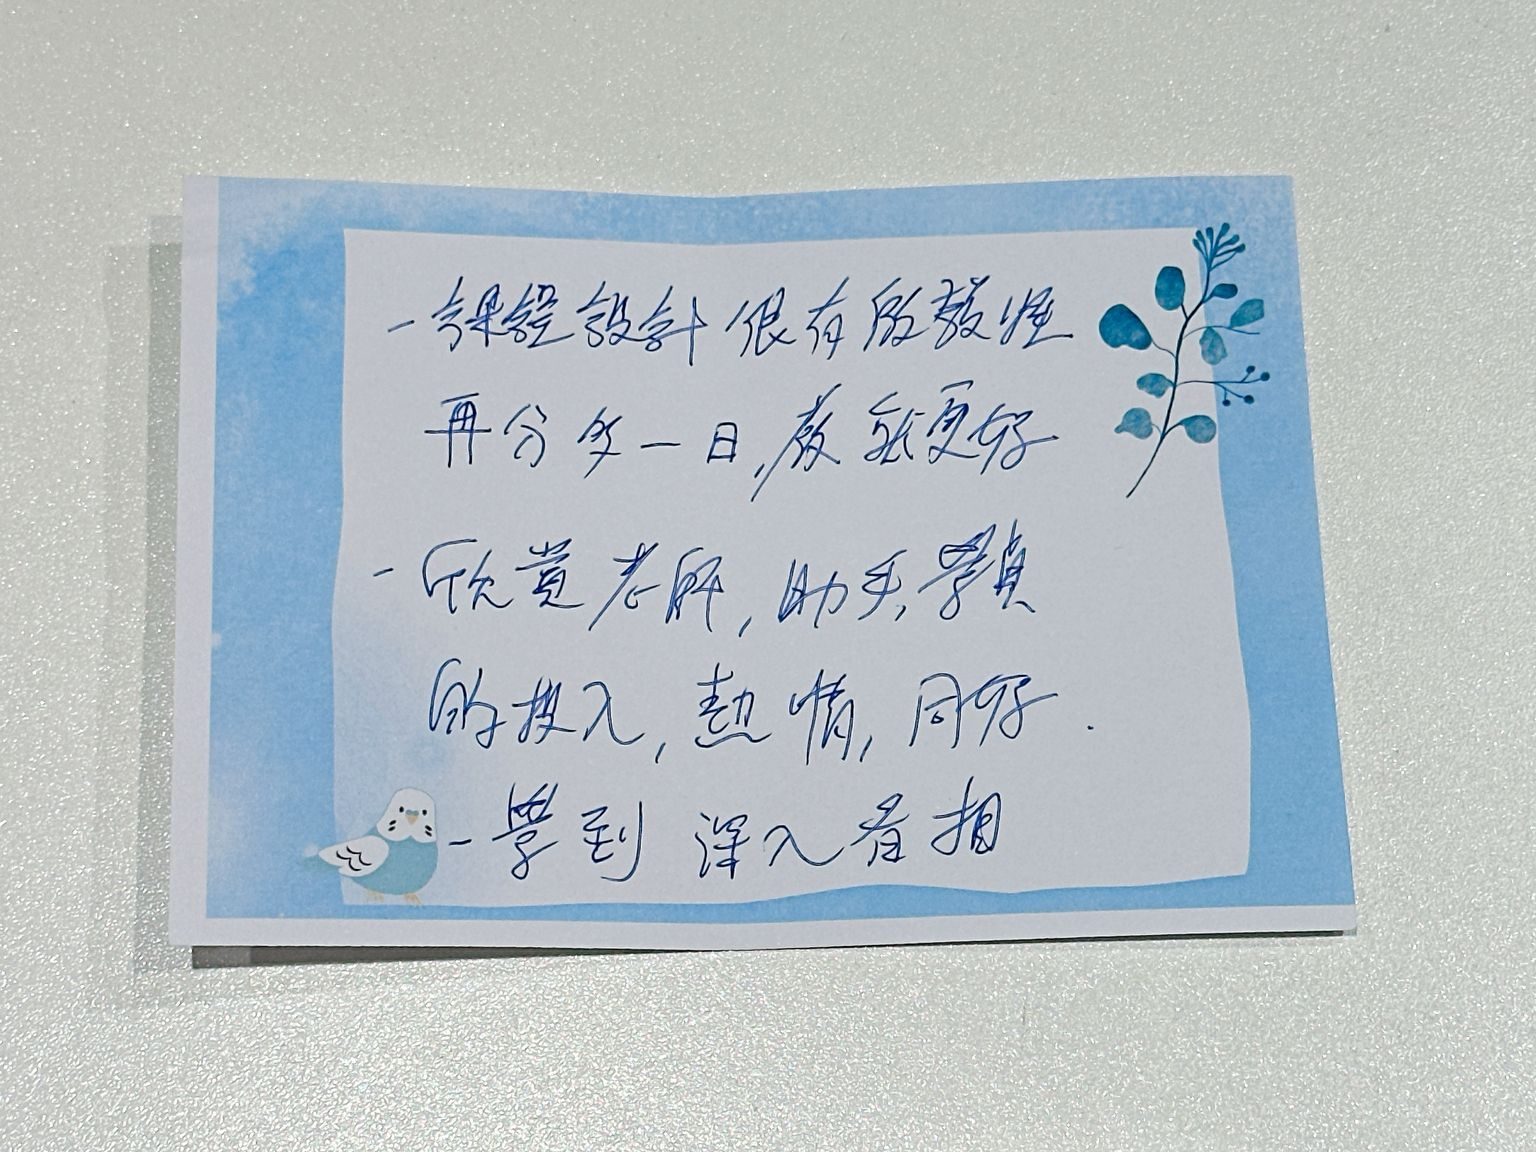 - 課程設計很有啟發性
再分多一日, 就更好
- 欣賞老師, 助手, 學員
的投入, 熱情, 同好.
- 學到 深入看相